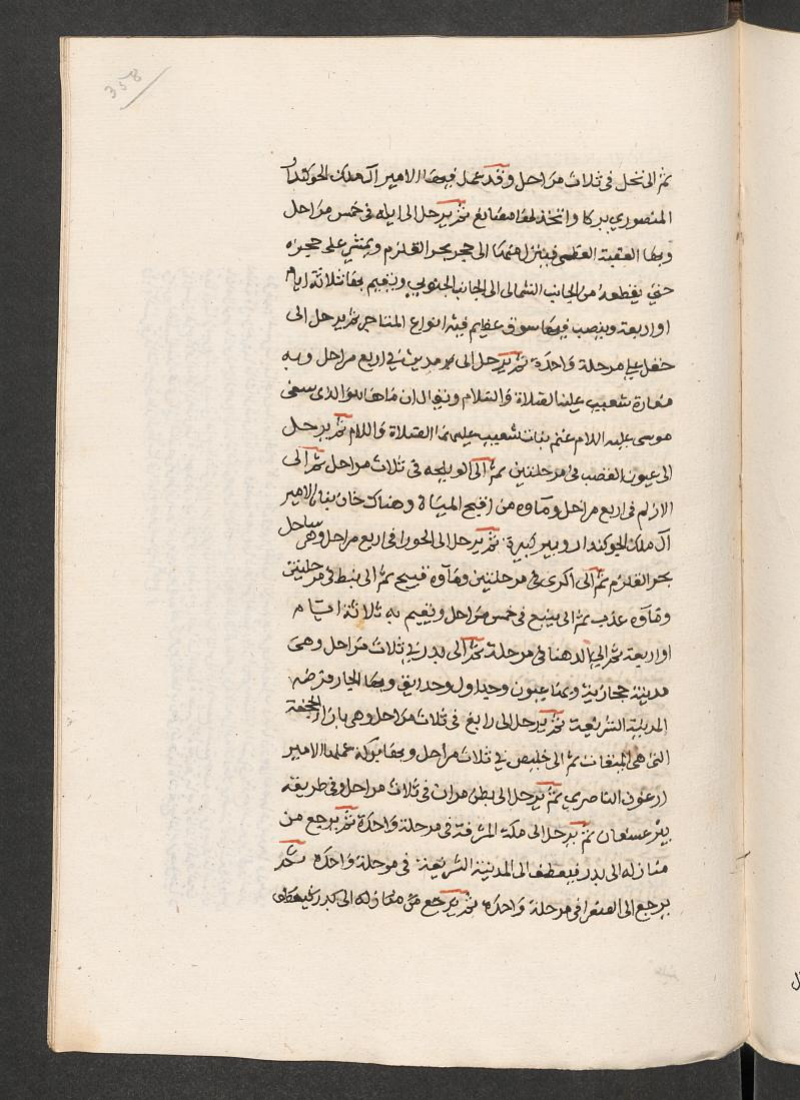 358
ثم الى نخل فى ثلاث مراحل وقد عمل فيها الامير آل ملك الجوكندار
المنصوري بركا واتخذ لها مصانع ثم يرحل الى ايله فى خمس مراحل
وبها العقبة العظمى فينزل منها الى حجر بحر القلزم ويمشي على حجزه
حتى يقطعه من الجانب الشمالى الى الجانب الجنوبي ويقيم بها ثلاثة ايام
او اربعة وينصب فيها سوق عظيم فيه انواع المتاجر ثم يرحل الى
حفل على مرحلة واحدة ثم يرحل الى بر مدين فى اربع مراحل وبه
مغارة شعيب عليه الصلاة والسلام ويقال ان ماها هو الذى سقى
موسى عليه السلام غنم بنات شعيب عليهما الصلاة والسلام ثم يرحل
الى عيون القصب فى مرحلتين ثم الى الويلحه فى ثلاث مراحل ثم الى
الازلم فى اربع مراحل وماوه من اقبح المياة وهناك خان بناه الامير
آل ملك الجوكندار وبير كبيرة ثم يرحل الى الحورا فى اربع مراحل وهى ساحل
بحر القلزم ثم الى اكرى فى مرحلتين وماوه قبيح ثم الى نبط فى مرحلتين
وماوه عذب ثم الى ينبع فى خمس مراحل ويقيم به ثلاثة ايام
او اربعة ثم الى الدهنا فى مرحلة ثم الى بدر فى ثلاث مراحل وهى
مدينة حجازية وبها عيون وجداول وحدايق وبها الجار فرضه
المدينة الشريفة ثم يرحل الى رابغ فى ثلاث مراحل وهى بازا الجحفة
التى هى الميقات ثم الى خليص في ثلاث مراحل وبها بركة عملها الامير
ارغون الناصري ثم يرحل الى بطن مران فى ثلاث مراحل وفى طريقه
بير عسفان ثم يرحل الى مكة المشرفة فى مرحلة واحدة ثم يرجع من
منازله الى بدر فيعطف الى المدينة الشريفة فى مرحلة واحدة ثم
يرجع الى الصفرا فى مرحلة واحدة ثم يرجع من منازله الى بدر فيعطف